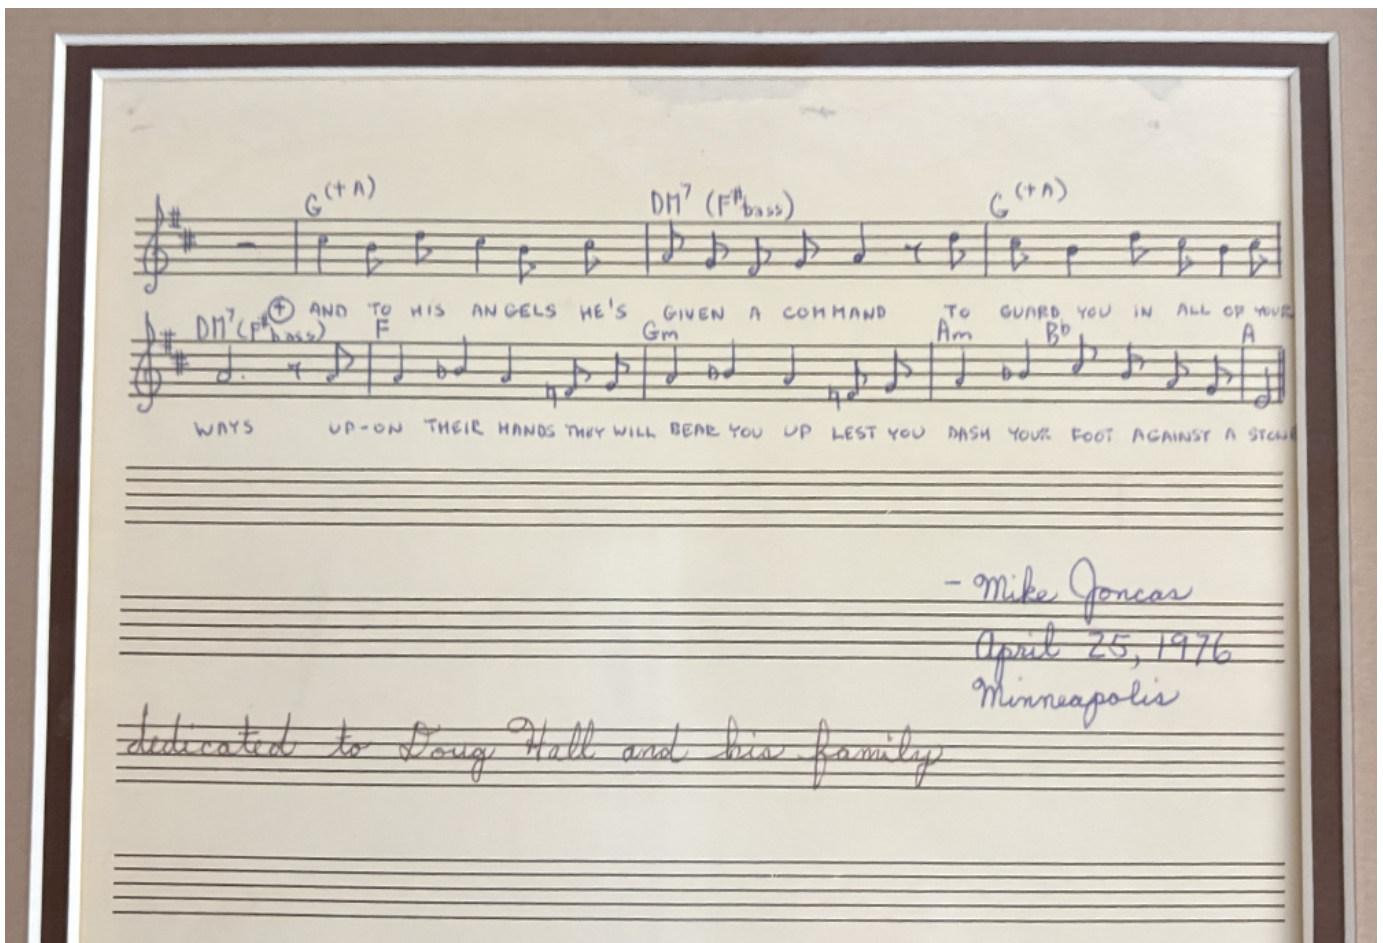 G(+A) DM7 (F#bass) G(+A)
+ AND TO HIS ANGELS HE'S GIVEN A COMMAND TO GUARD YOU IN ALL OF YOUR
DM7(F#bass) F Gm Am Bb A
WAYS UP-ON THEIR HANDS THEY WILL BEAR YOU UP LEST YOU DASH YOUR FOOT AGAINST A STONE
- Mike Joncas
April 25, 1976
Minneapolis
dedicated to Doug Hall and his family